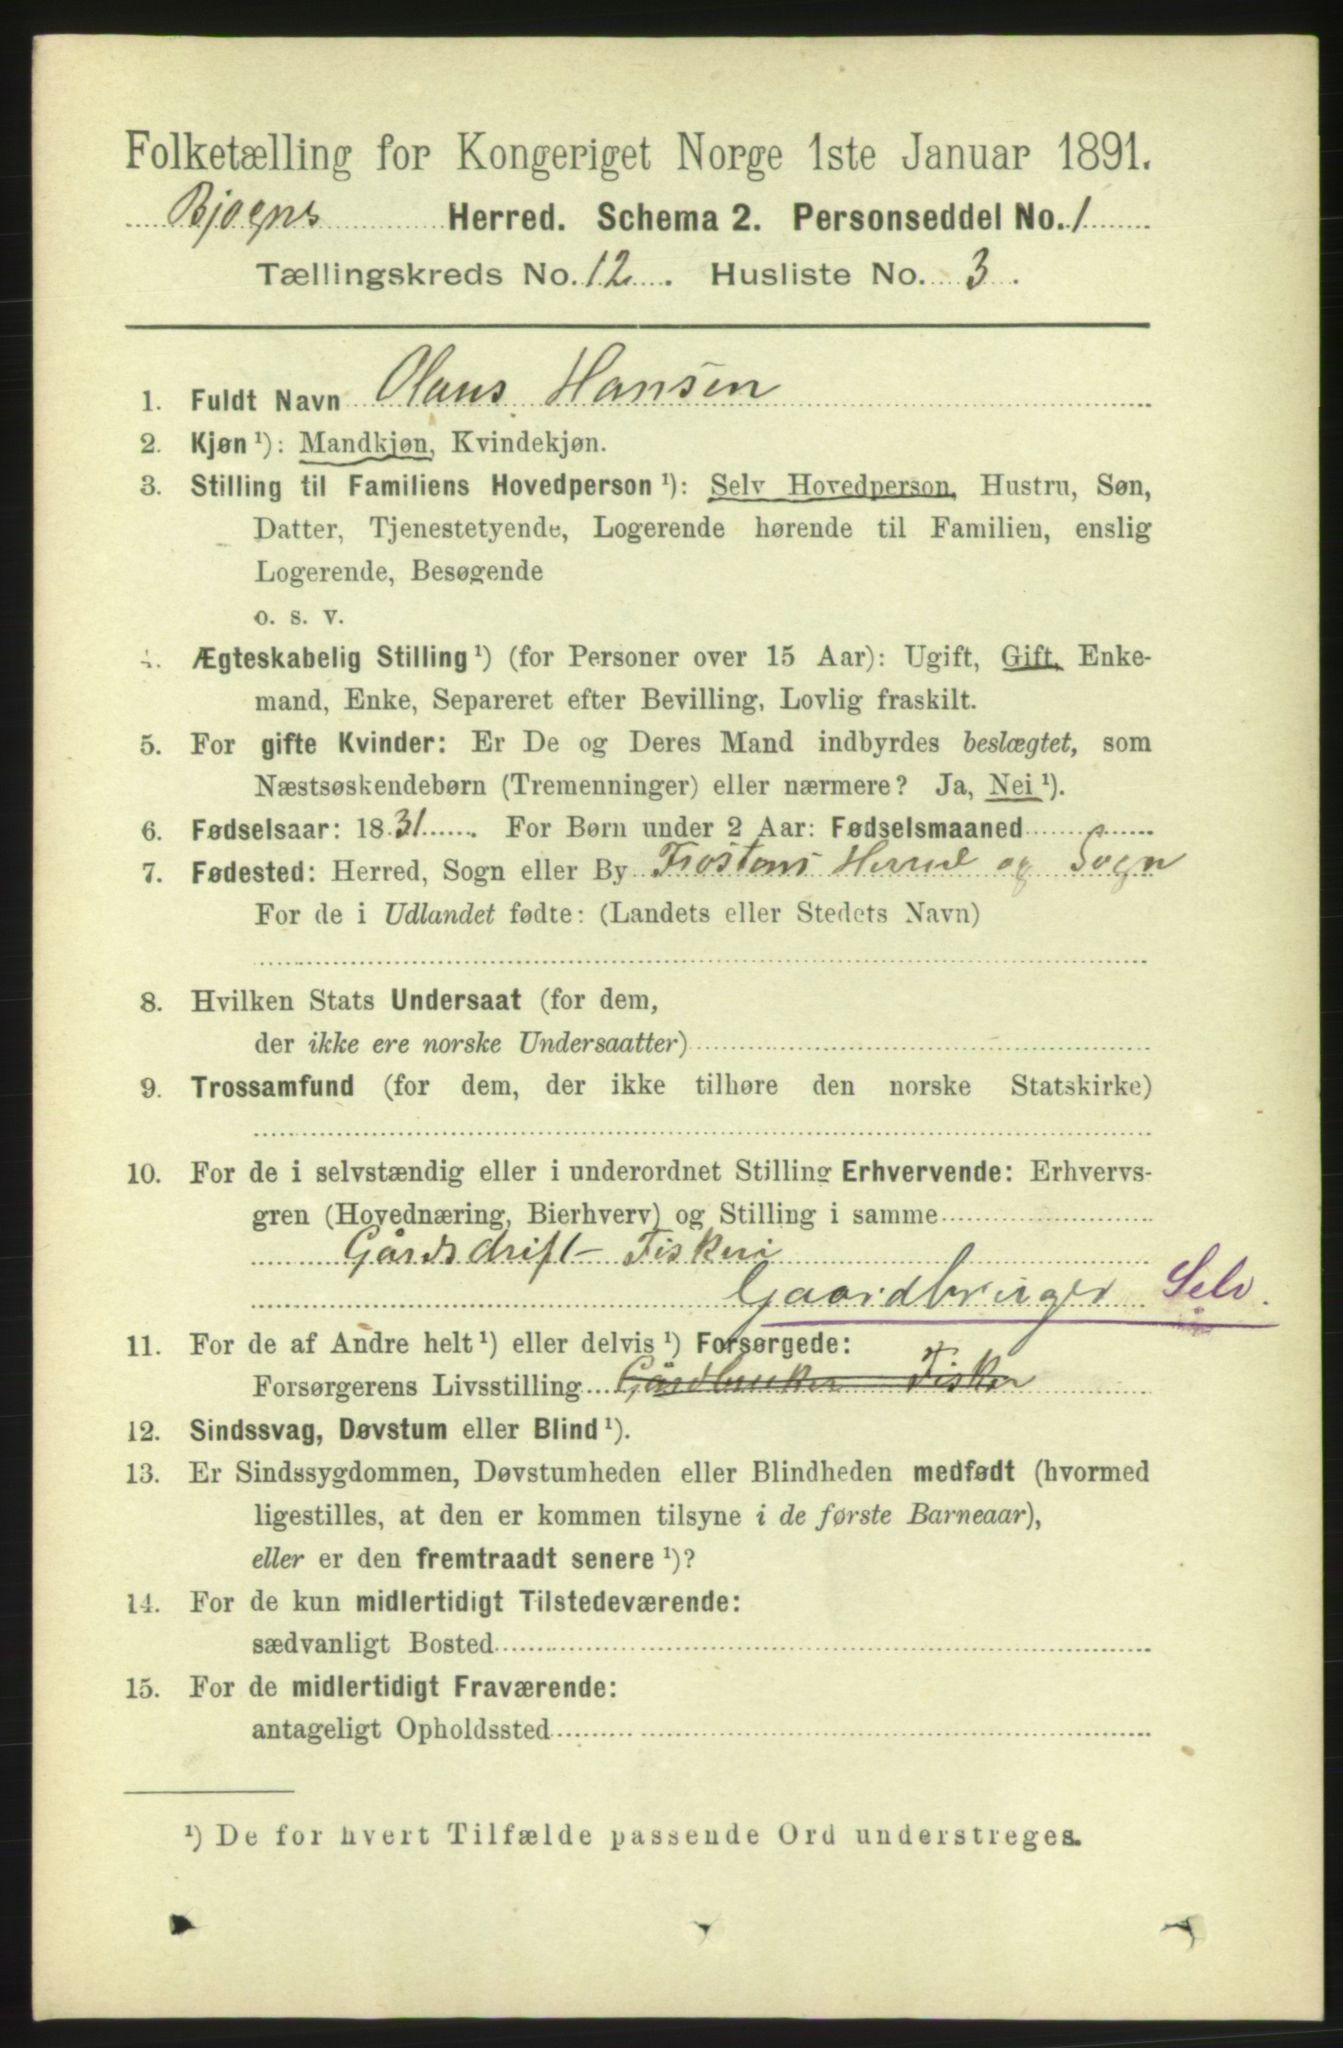 Folketælling for Kongeriget Norge 1ste Januar 1891.
Bjørns Herred. Schema 2. Personseddel No. 1
Tællingskreds No. 12. Husliste No. 3.
1. Fuldt Navn Olaus Hansen
2. Kjøn ¹): Mandkjøn, Kvindekjøn.
3. Stilling til Familiens Hovedperson ¹): Selv Hovedperson, Hustru, Søn,
Datter, Tjenestetyende, Logerende hørende til Familien, enslig
Logerende, Besøgende
o. s. v.
4. Ægteskabelig Stilling ¹) (for Personer over 15 Aar): Ugift, Gift, Enke-
mand, Enke, Separeret efter Bevilling, Lovlig fraskilt.
5. For gifte Kvinder: Er De og Deres Mand indbyrdes beslægtet, som
Næstsøskendebørn (Tremenninger) eller nærmere? Ja, Nei ¹).
6. Fødselsaar: 1831. For Børn under 2 Aar: Fødselsmaaned
7. Fødested: Herred, Sogn eller By Frostens Herred og Sogn
For de i Udlandet fødte: (Landets eller Stedets Navn)
8. Hvilken Stats Undersaat (for dem,
der ikke ere norske Undersaatter)
9. Trossamfund (for dem, der ikke tilhøre den norske Statskirke)
10. For de i selvstændig eller i underordnet Stilling Erhvervende: Erhvervs-
gren (Hovednæring, Bierhverv) og Stilling i samme
Gårdsdrift - Fiskeri
Gaardbruger Selv.
11. For de af Andre helt ¹) eller delvis ¹) Forsørgede:
Forsørgerens Livsstilling Gårdbruker Fisker
12. Sindssvag, Døvstum eller Blind ¹).
13. Er Sindssygdommen, Døvstumheden eller Blindheden medfødt (hvormed
ligestilles, at den er kommen tilsyne i de første Barneaar),
eller er den fremtraadt senere ¹)?
14. For de kun midlertidigt Tilstedeværende:
sædvanligt Bosted
15. For de midlertidigt Fraværende:
antageligt Opholdssted
¹) De for hvert Tilfælde passende Ord understreges.